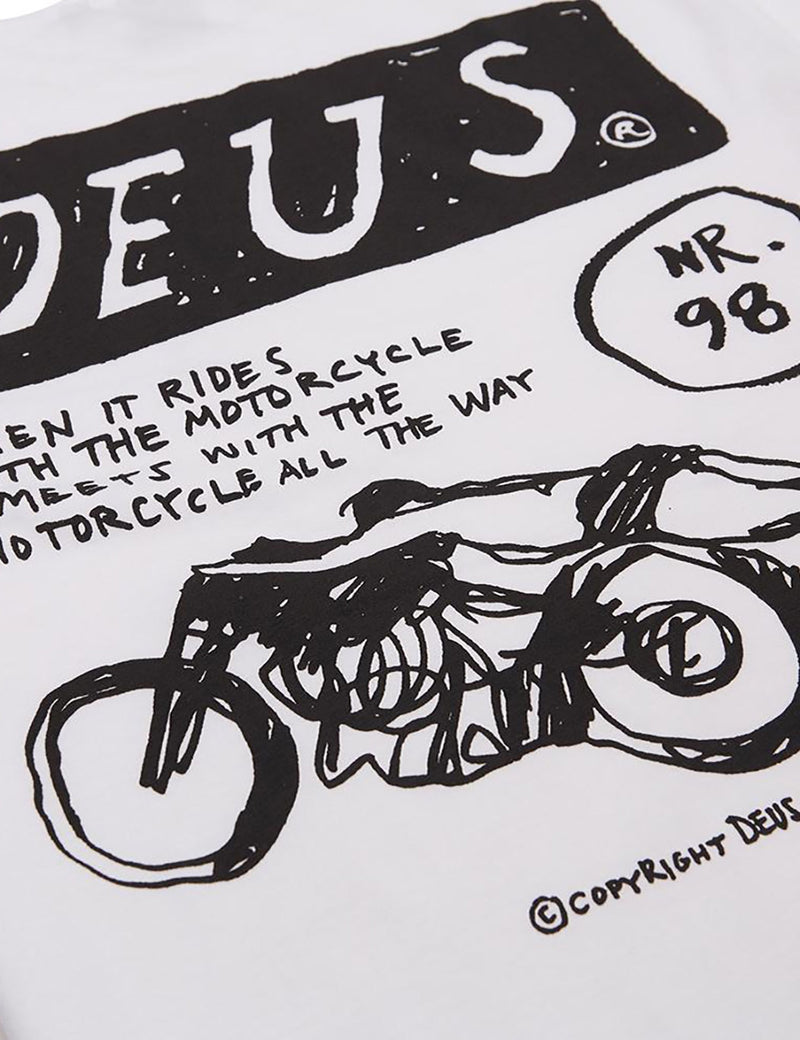 DEUS®
NR.
98
EN IT RIDES
TH THE MOTORCYCLE
MEETS WITH THE
MOTORCYCLE ALL THE WAY
©COPYRIGHT DEUS